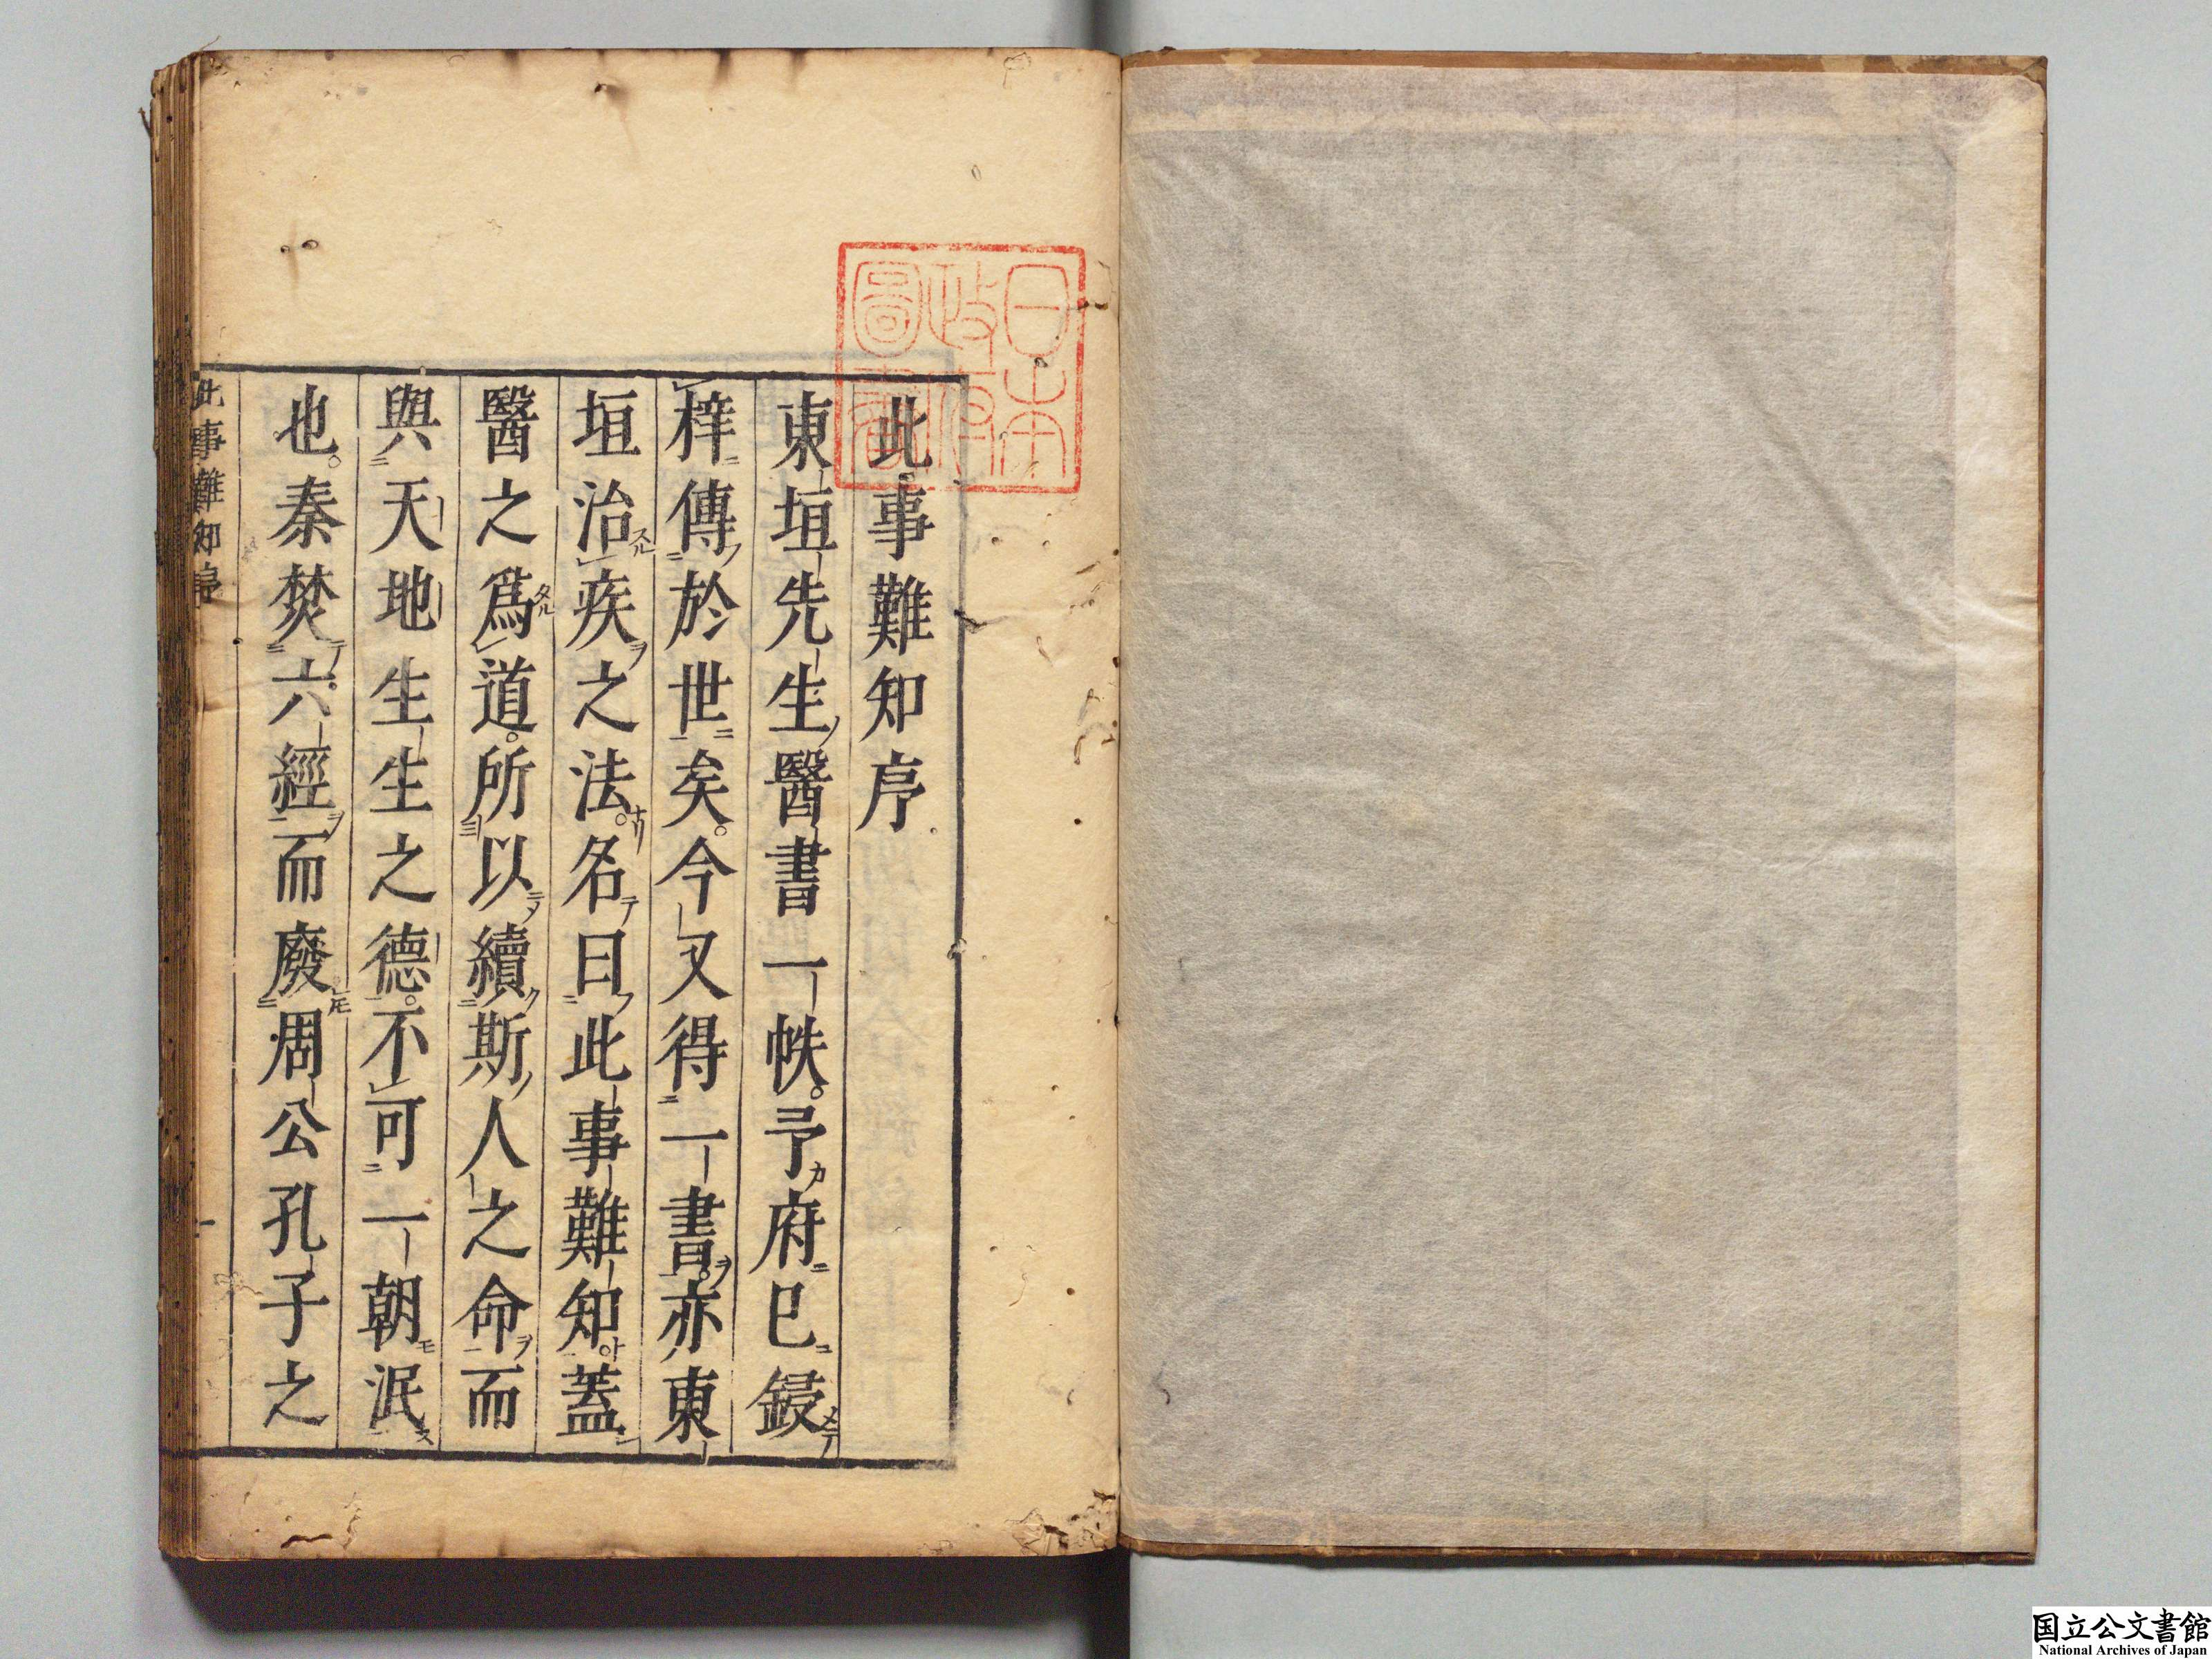 此事難知序
東垣先生醫書一帙。予府已鋟
梓傳於世矣。今又得一書。亦東
垣治疾之法。名曰此事難知。蓋
醫之爲道。所以續斯人之命而
與天地生生之德。不可一朝泯
也。秦焚六經而廢周公孔子之
此事難知序
一
日本
政府
圖書
国立公文書館
National Archives of Japan